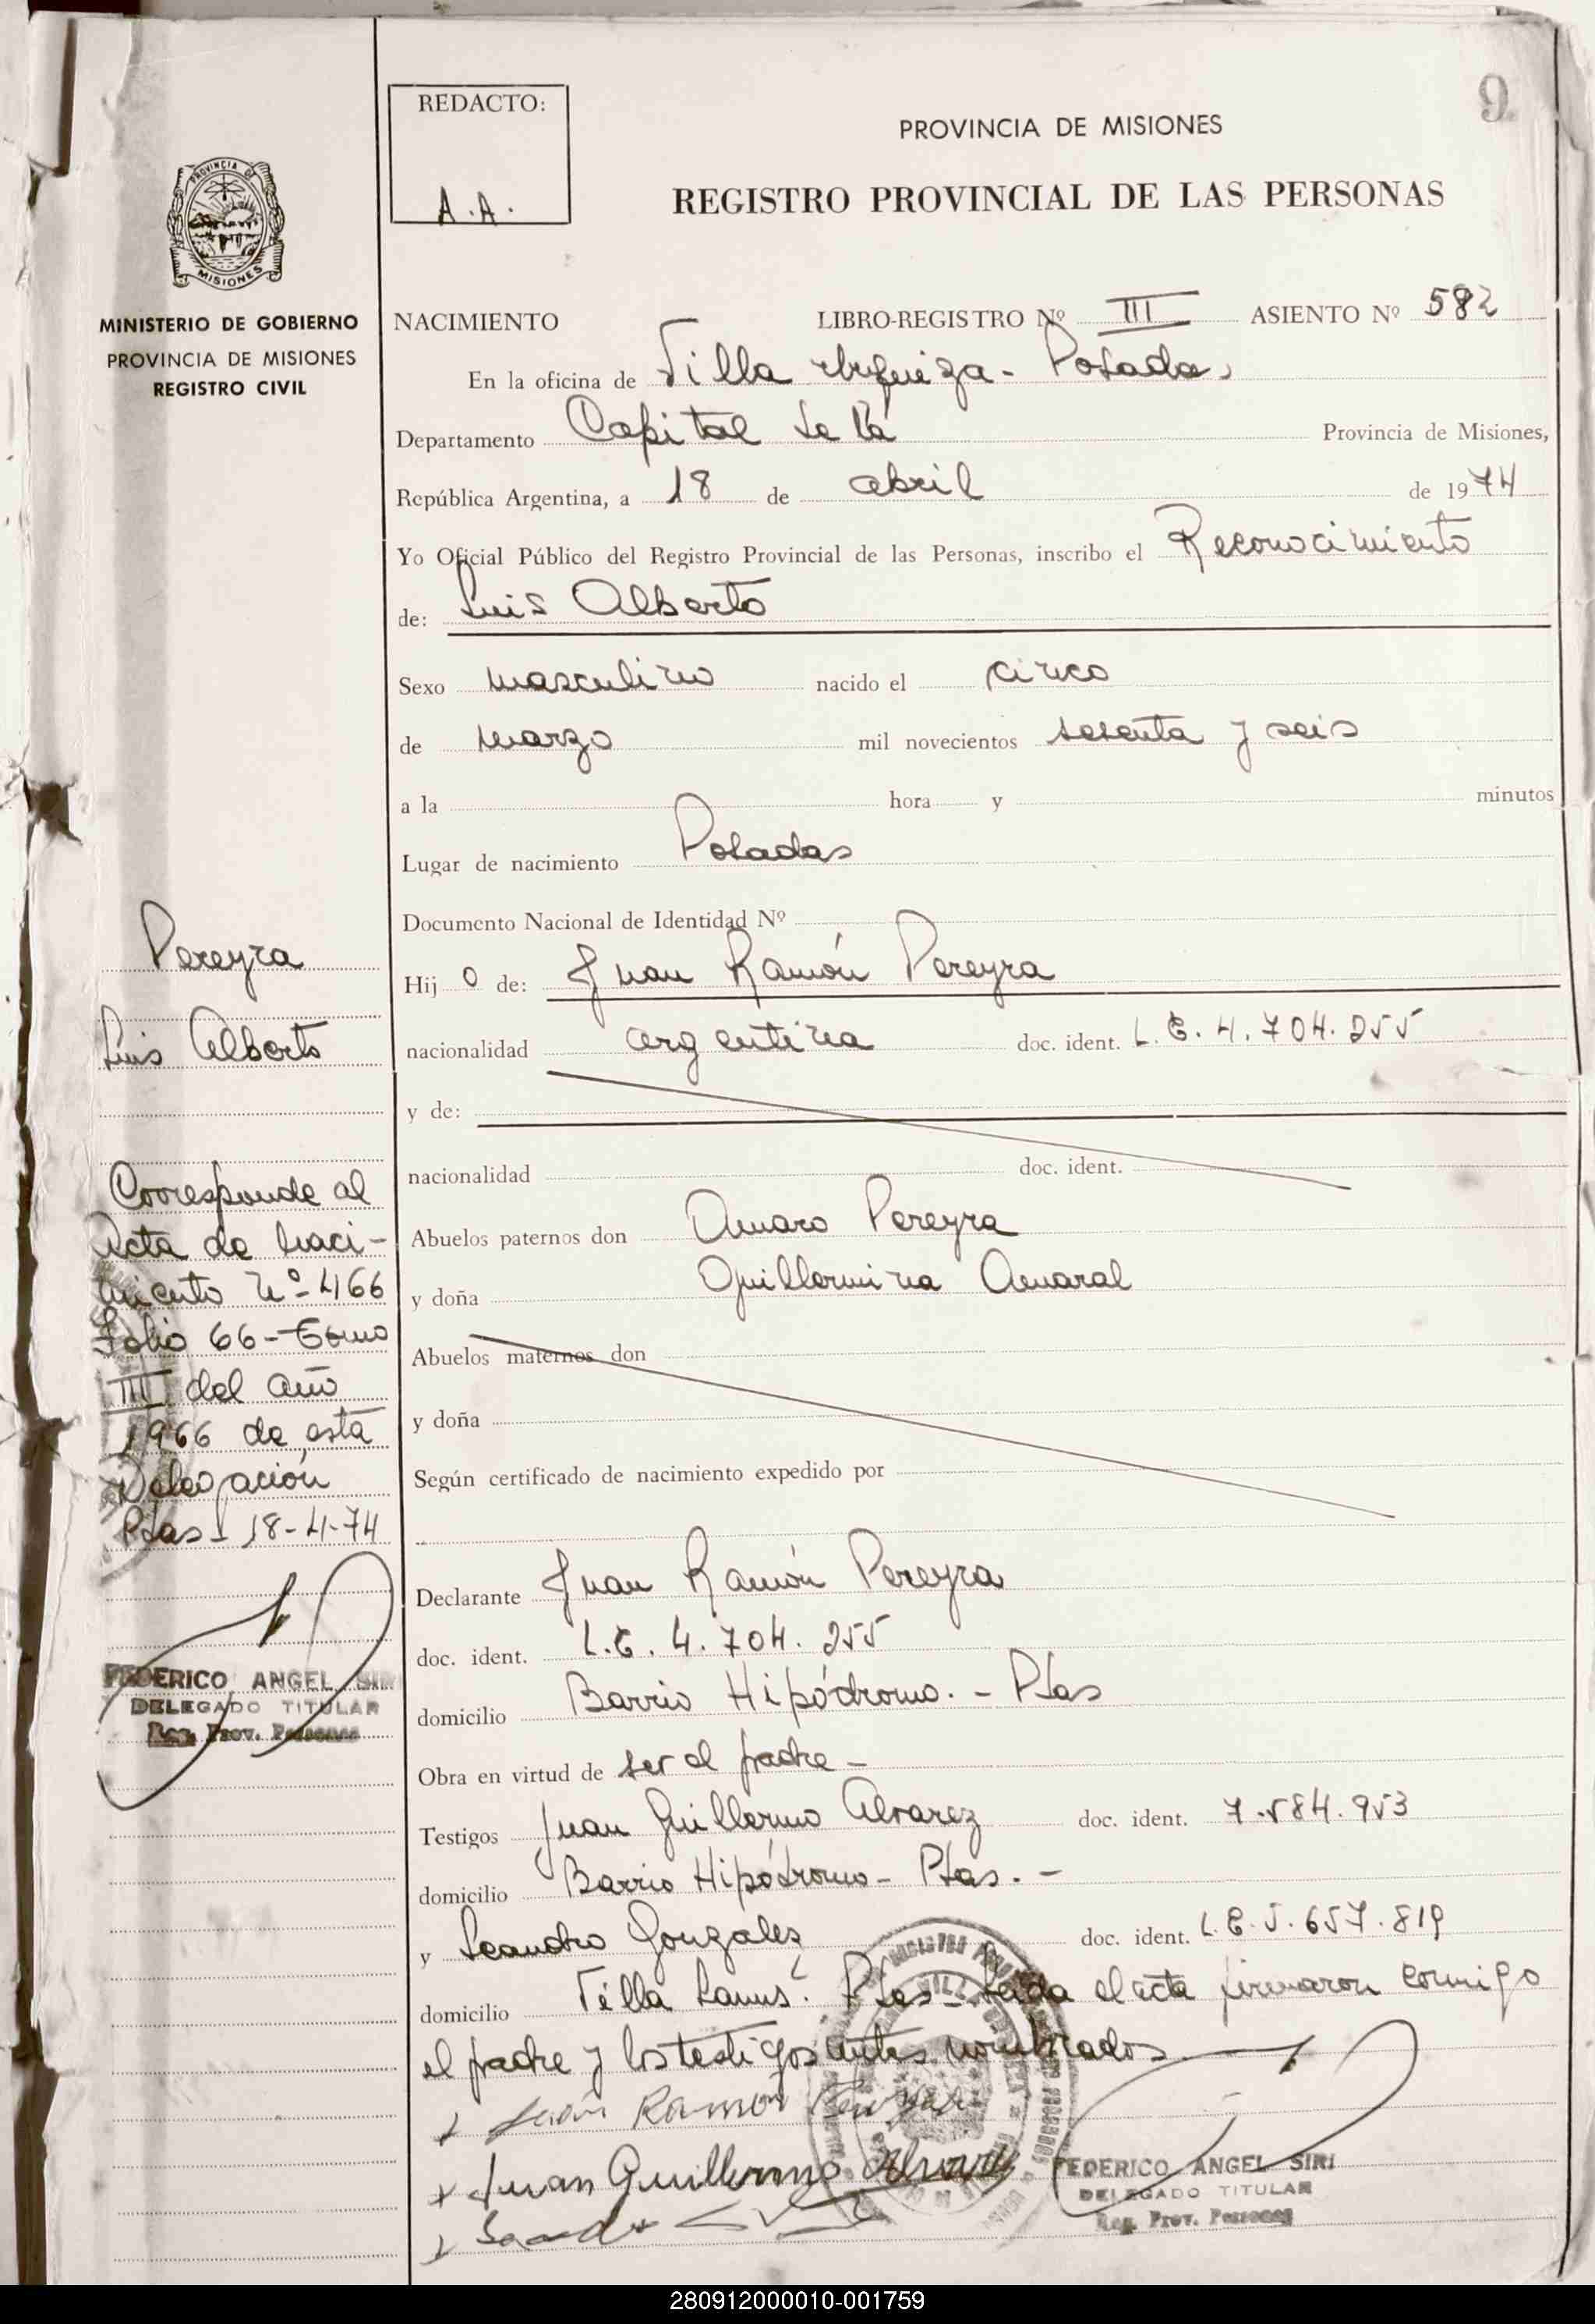 9
REDACTO:
A.A.
PROVINCIA DE MISIONES
REGISTRO PROVINCIAL DE LAS PERSONAS
PROVINCIA DE
MISIONES
MINISTERIO DE GOBIERNO
PROVINCIA DE MISIONES
REGISTRO CIVIL
NACIMIENTO LIBRO-REGISTRO Nº III ASIENTO Nº 582
En la oficina de Villa Posadas
Departamento Capital de la Provincia de Misiones,
República Argentina, a 18 de abril de 1974
Yo Oficial Público del Registro Provincial de las Personas, inscribo el Reconocimiento
de: Luis Alberto
Sexo masculino nacido el cinco
de marzo mil novecientos sesenta y seis
a la hora y minutos
Lugar de nacimiento Posadas
Documento Nacional de Identidad Nº
Hij o de: Juan Ramón Pereyra
nacionalidad argentina doc. ident. L.E. 4.704.255
y de:
nacionalidad doc. ident.
Abuelos paternos don Amaro Pereyra
y doña Guillermina Amaral
Abuelos maternos don
y doña
Según certificado de nacimiento expedido por
Declarante Juan Ramón Pereyra
doc. ident. L.E. 4.704.255
domicilio Barrio Hipódromo. - Pdas
Obra en virtud de ser el padre -
Testigos Juan Guillermo Alvarez doc. ident. 7.584.953
domicilio Barrio Hipódromo - Pdas. -
y Leandro Gonzalez doc. ident. L.E. 5.657.819
domicilio Villa Lanus. Pdas - Leida el acta firmaron conmigo
el padre y los testigos antes nombrados
Juan Ramon Pereyra
Juan Guillermo Alvarez
FEDERICO ANGEL SIRI
DELEGADO TITULAR
Reg. Prov. Personas
Pereyra
Luis Alberto
Corresponde al
Acta de Naci-
miento Nº 466
Folio 66 - Tomo
III del año
1966 de esta
Delegación
Pdas 18-4-74
FEDERICO ANGEL SIRI
DELEGADO TITULAR
Reg. Prov. Personas
280912000010-001759